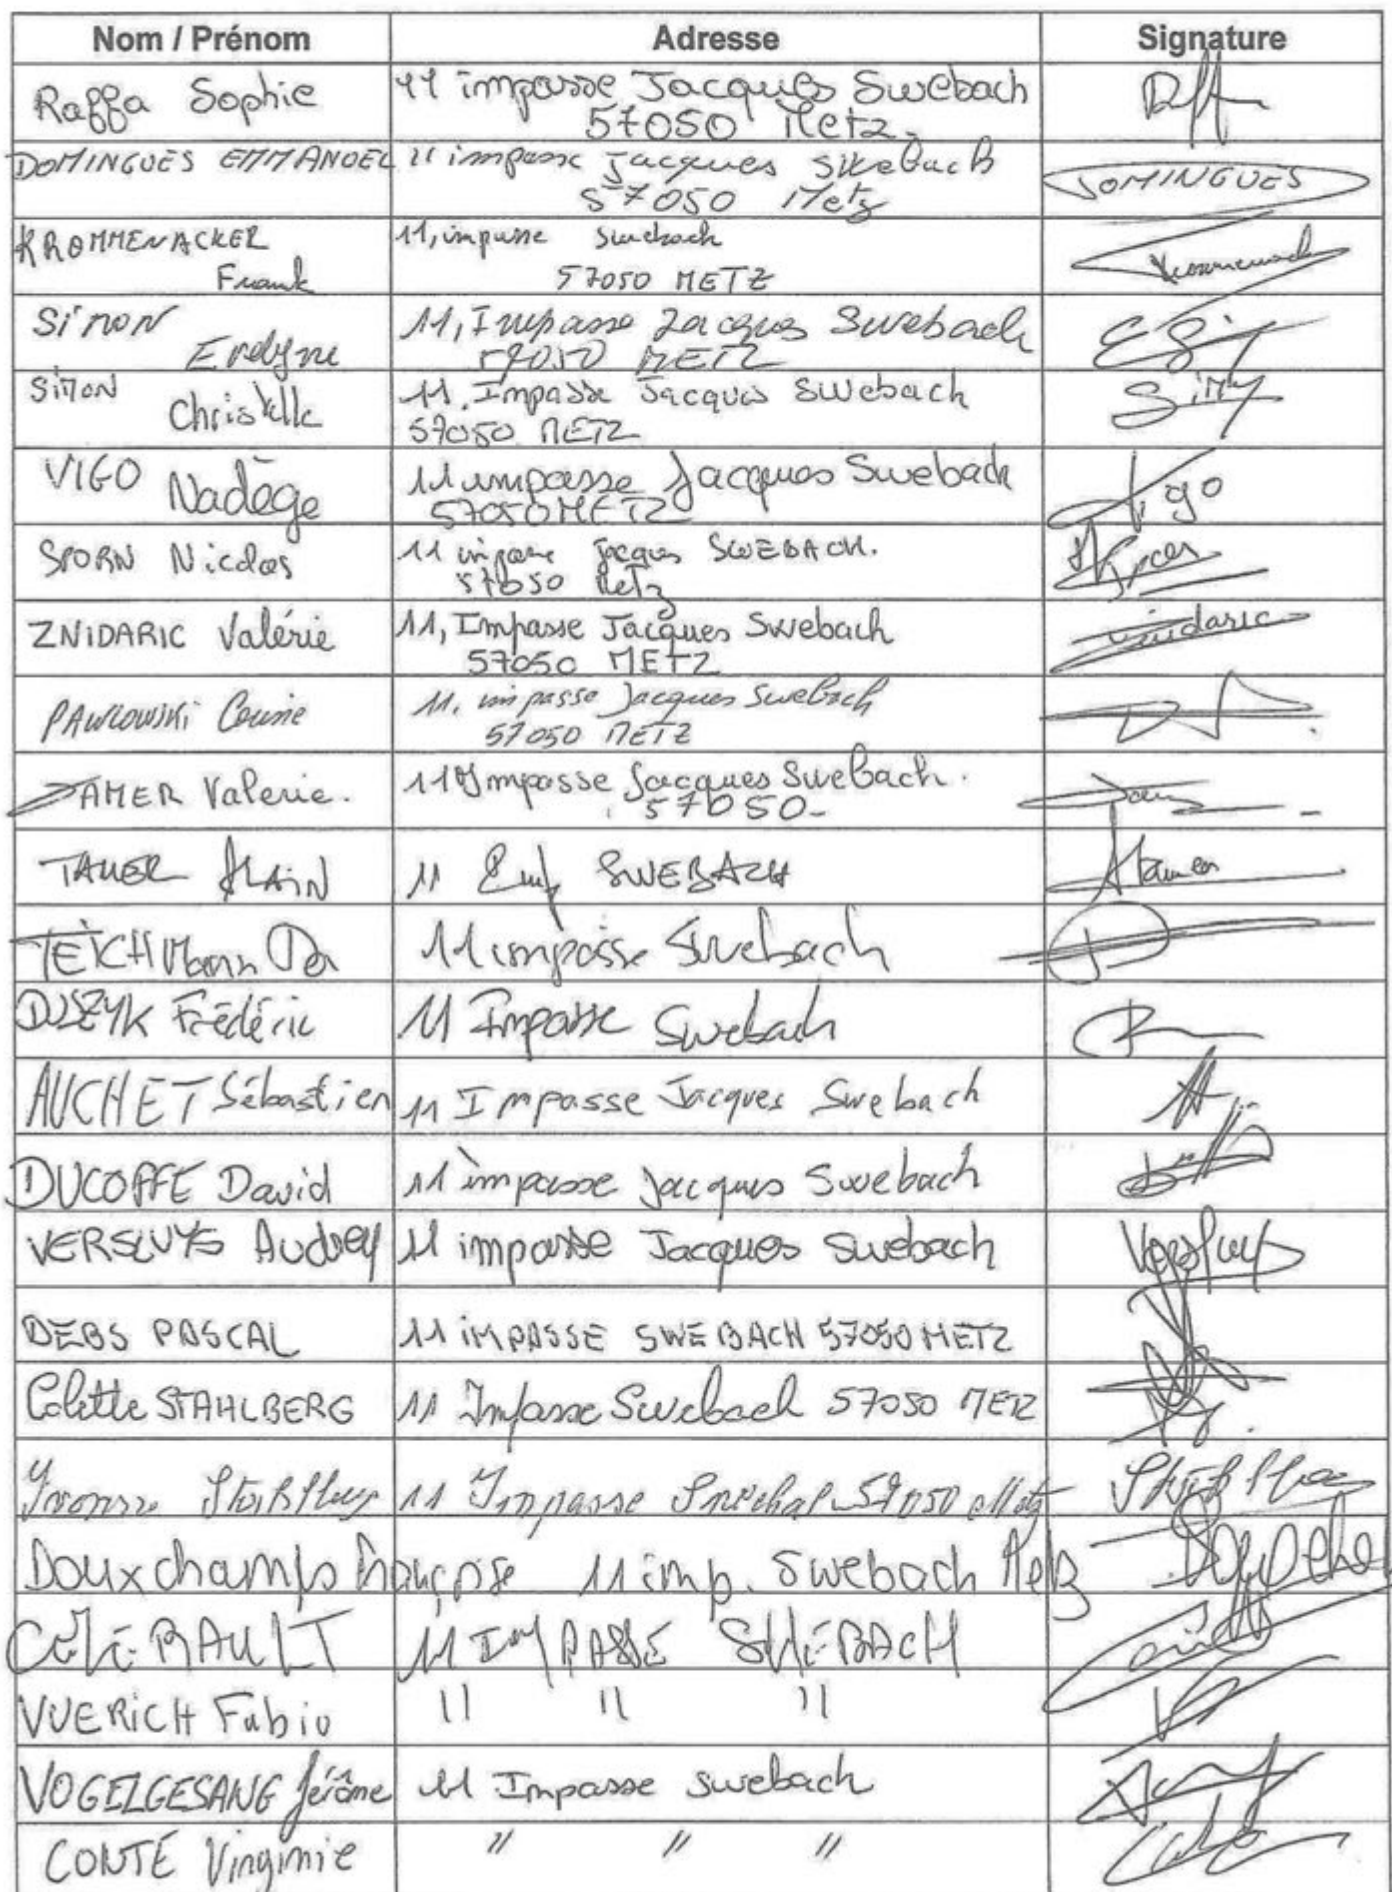 Nom / Prénom Adresse Signature
Raffa Sophie 11 impasse Jacques Swebach
57050 Metz
DOMINGUES EMMANUEL 11 impasse Jacques Swebach DOMINGUES
57050 Metz
KROMMENACKER 11, impasse Swebach
Frank 57050 METZ
SIMON 11, Impasse Jacques Swebach
Evelyne 57050 METZ
SIMON 11, Impasse Jacques Swebach
Christelle 57050 METZ
VIGO Nadège 11 impasse Jacques Swebach
57050 METZ
SPORN Nicolas 11 impasse Jacques SWEBACH.
57050 Metz
ZNIDARIC Valérie 11, Impasse Jacques Swebach Znidaric
57050 METZ
PAWLOWSKI 11, impasse Jacques Swebach
57050 METZ
TAMER Valerie. 11 Impasse Jacques Swebach.
57050-
TAMER ALAIN 11 SWEBACH
TEICHMann 11 impasse Swebach
DUSZYK Frédéric 11 Impasse Swebach
AUCHET Sébastien 11 Impasse Jacques Swebach
DUCOFFE David 11 impasse Jacques Swebach
VERSLUYS Audrey 11 impasse Jacques Swebach Versluys
DEBS PASCAL 11 IMPASSE SWEBACH 57050 METZ
Colette STAHLBERG 11 Impasse Swebach 57050 METZ
11 Impasse 57050 Metz
Douxchamps Françoise 11 imp. Swebach Metz
RAULT 11 IMPASSE SWEBACH
VUERICH Fabio 11 11 11
VOGELGESANG Jérôme 11 Impasse Swebach
CONTÉ Virginie " " "